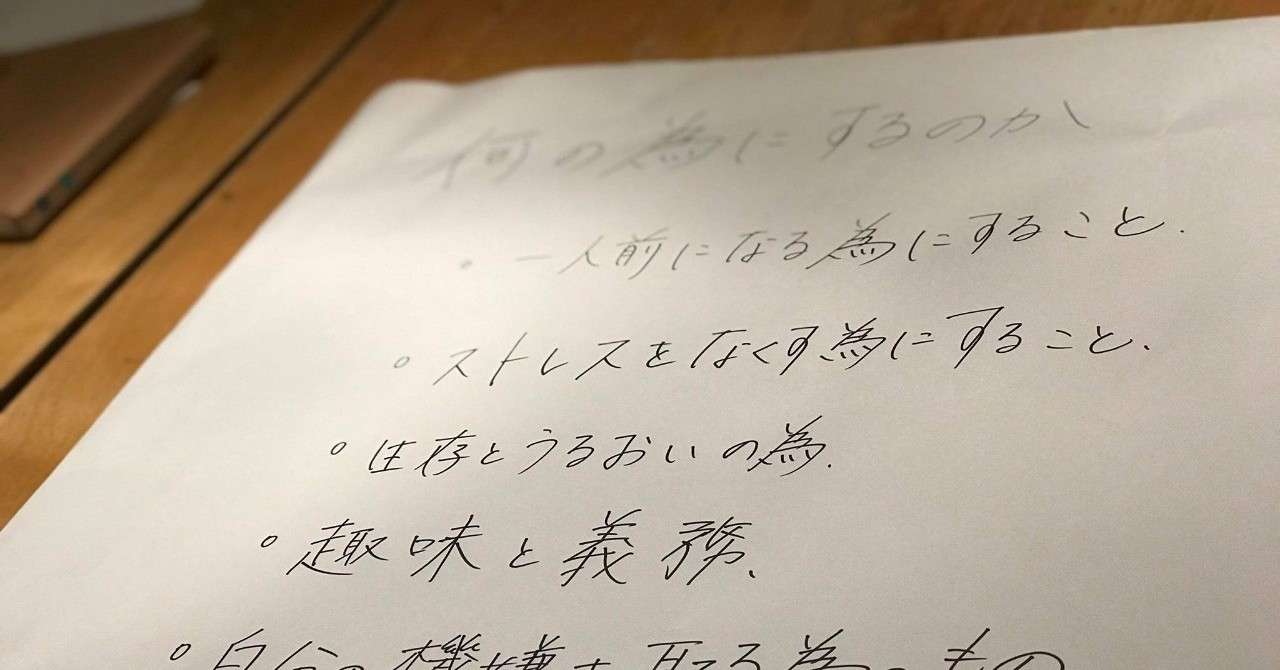 何の為にするのか
。一人前になる為にすること.
。ストレスをなくす為にすること.
。生存とうるおいの為.
。趣味と義務、
。自分の機嫌を取る為のもの